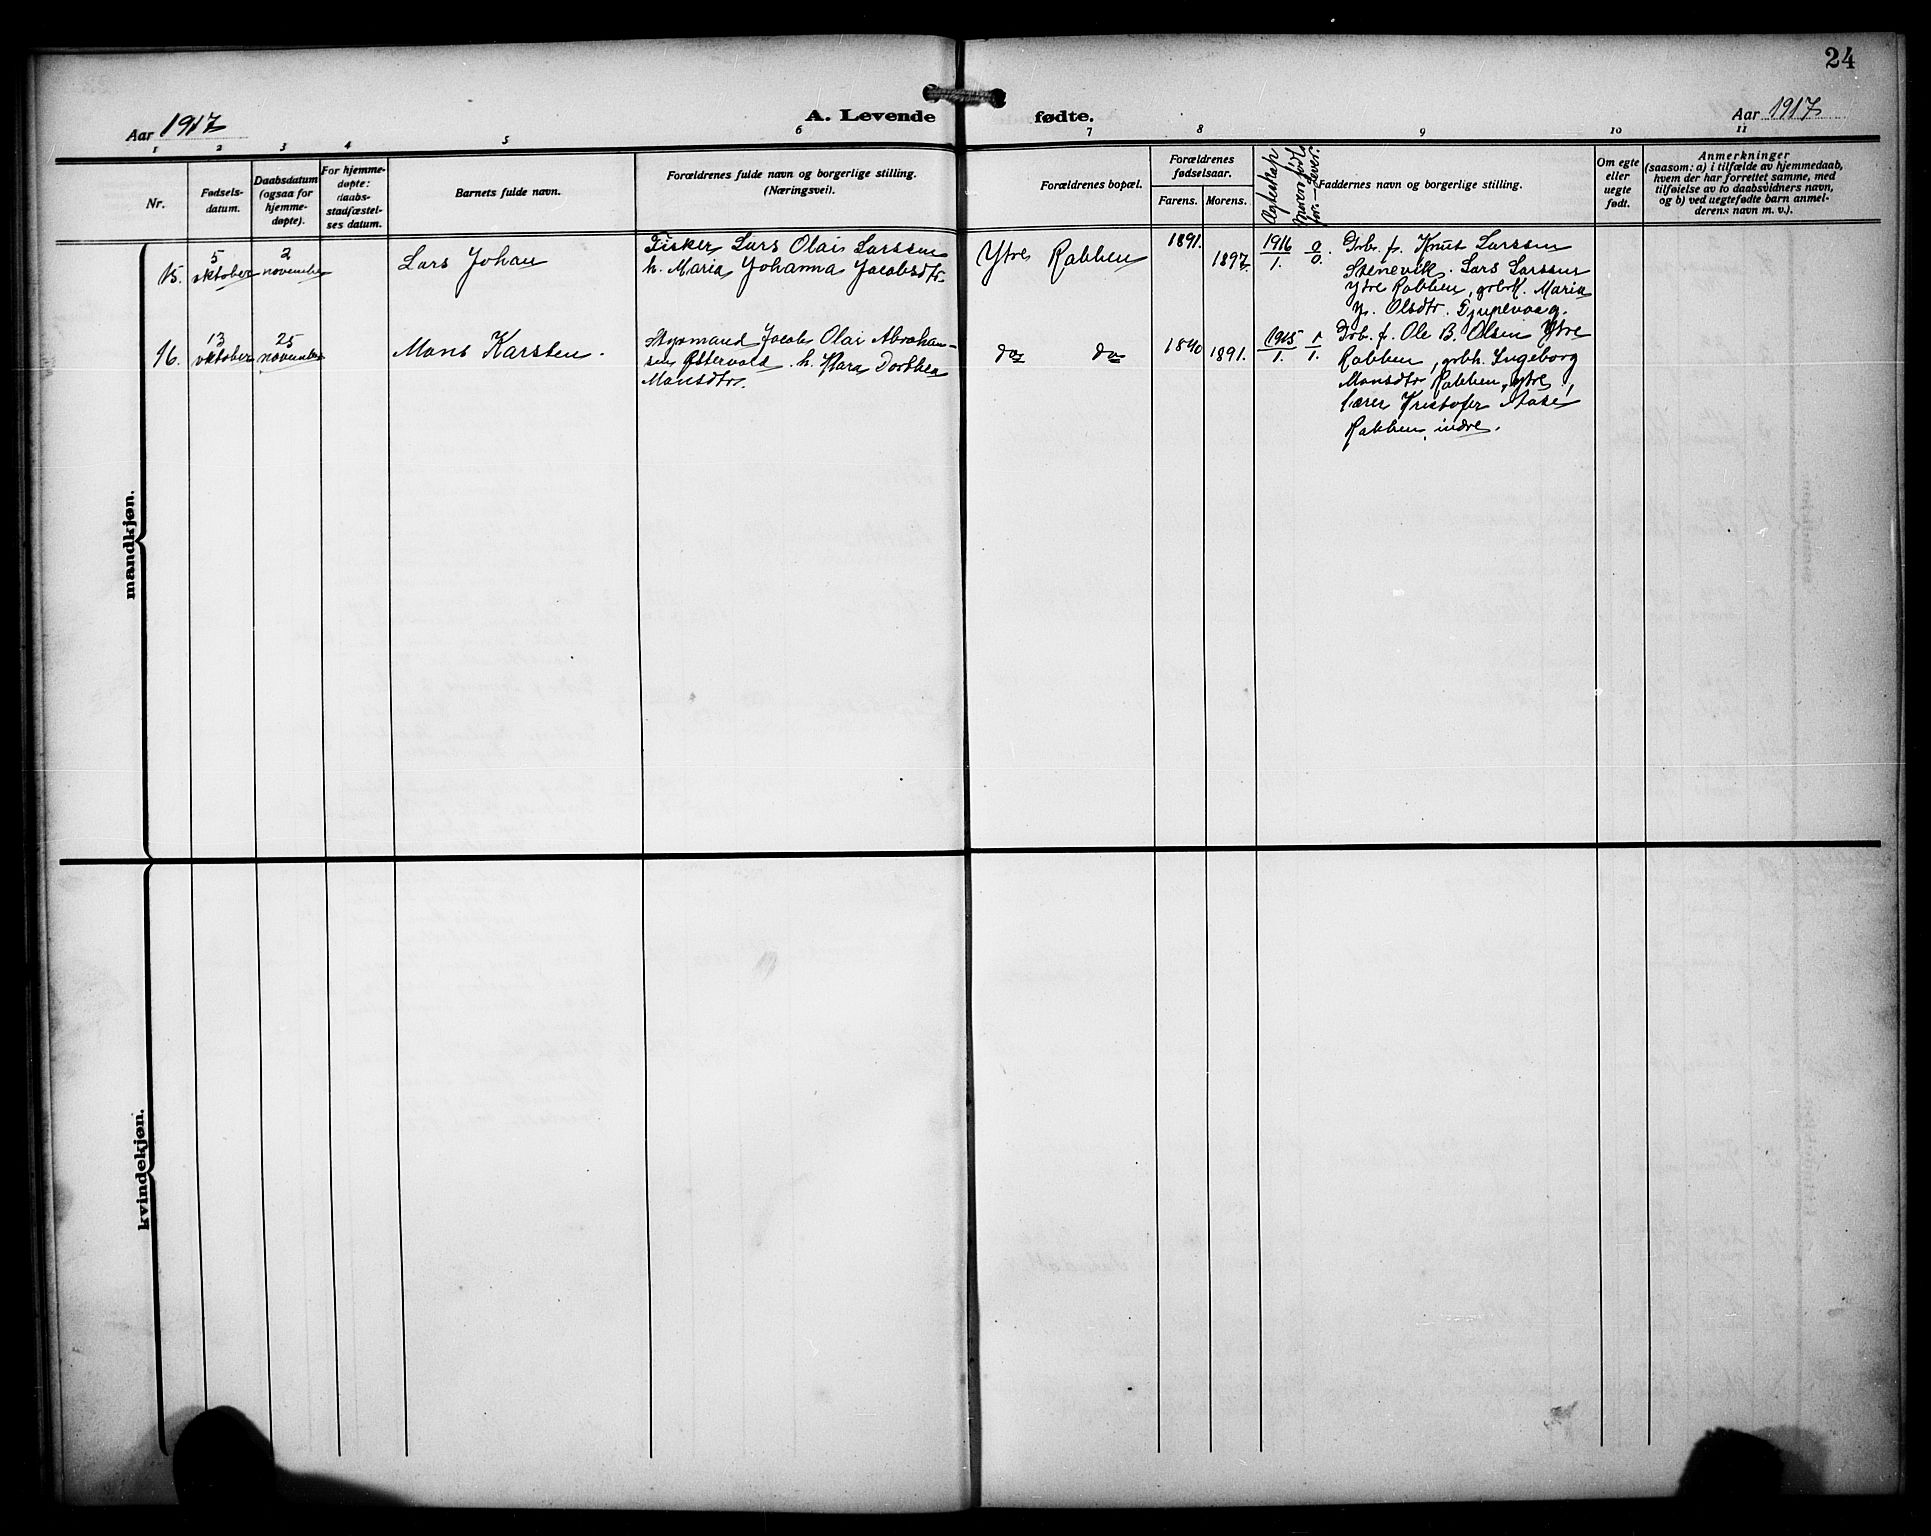 24
Aar 1917
A. Levende fødte.
Aar 1917
1 2 3 4 5 6 7 8 9 10 11
Nr.
Fødsels-
datum.
Daabsdatum
(ogsaa for
hjemme-
døpte).
For hjemme-
døpte:
daabs-
stadfæstel-
ses datum.
Barnets fulde navn.
Forældrenes fulde navn og borgerlige stilling.
(Næringsvei).
Forældrenes bopæl.
Forældrenes
fødselsaar.
Farens. Morens.
Ægteskap
Faddernes navn og borgerlige stilling.
Om egte
eller
uegte
født.
Anmerkninger
(saasom: a) i tilfælde av hjemmedaab,
hvem der har forrettet samme, med
tilføielse av to daabsvidners navn,
og b) ved uegtefødte barn anmel-
derens navn m. v.).
mandkjøn.
15.
5
oktober
2
november
Lars Johan
Fisker Lars Olai Larssen
h. Maria Johanna Jacobsdtr.
Ytre Rabben
1891.
1897.
1916
1.
0
0.
Grb. f. Knut Larssen
Stenevik. Lars Larssen
Ytre Rabben, grbrk. Maria
J. Olsdtr.
16.
13
oktober
25
november
Mons Karsten.
Styrmand Jacob Olai Abraham-
sen Østervold. h. Klara Dorthea
Monsdtr.
do do
1890
1891.
1915
1.
1
1.
Grb. f. Ole B. Olsen Ytre
Rabben, grbh. Ingeborg
Monsdtr Rabben, ytre,
lærer Kristofer
Rabben, indre.
kvindekjøn.